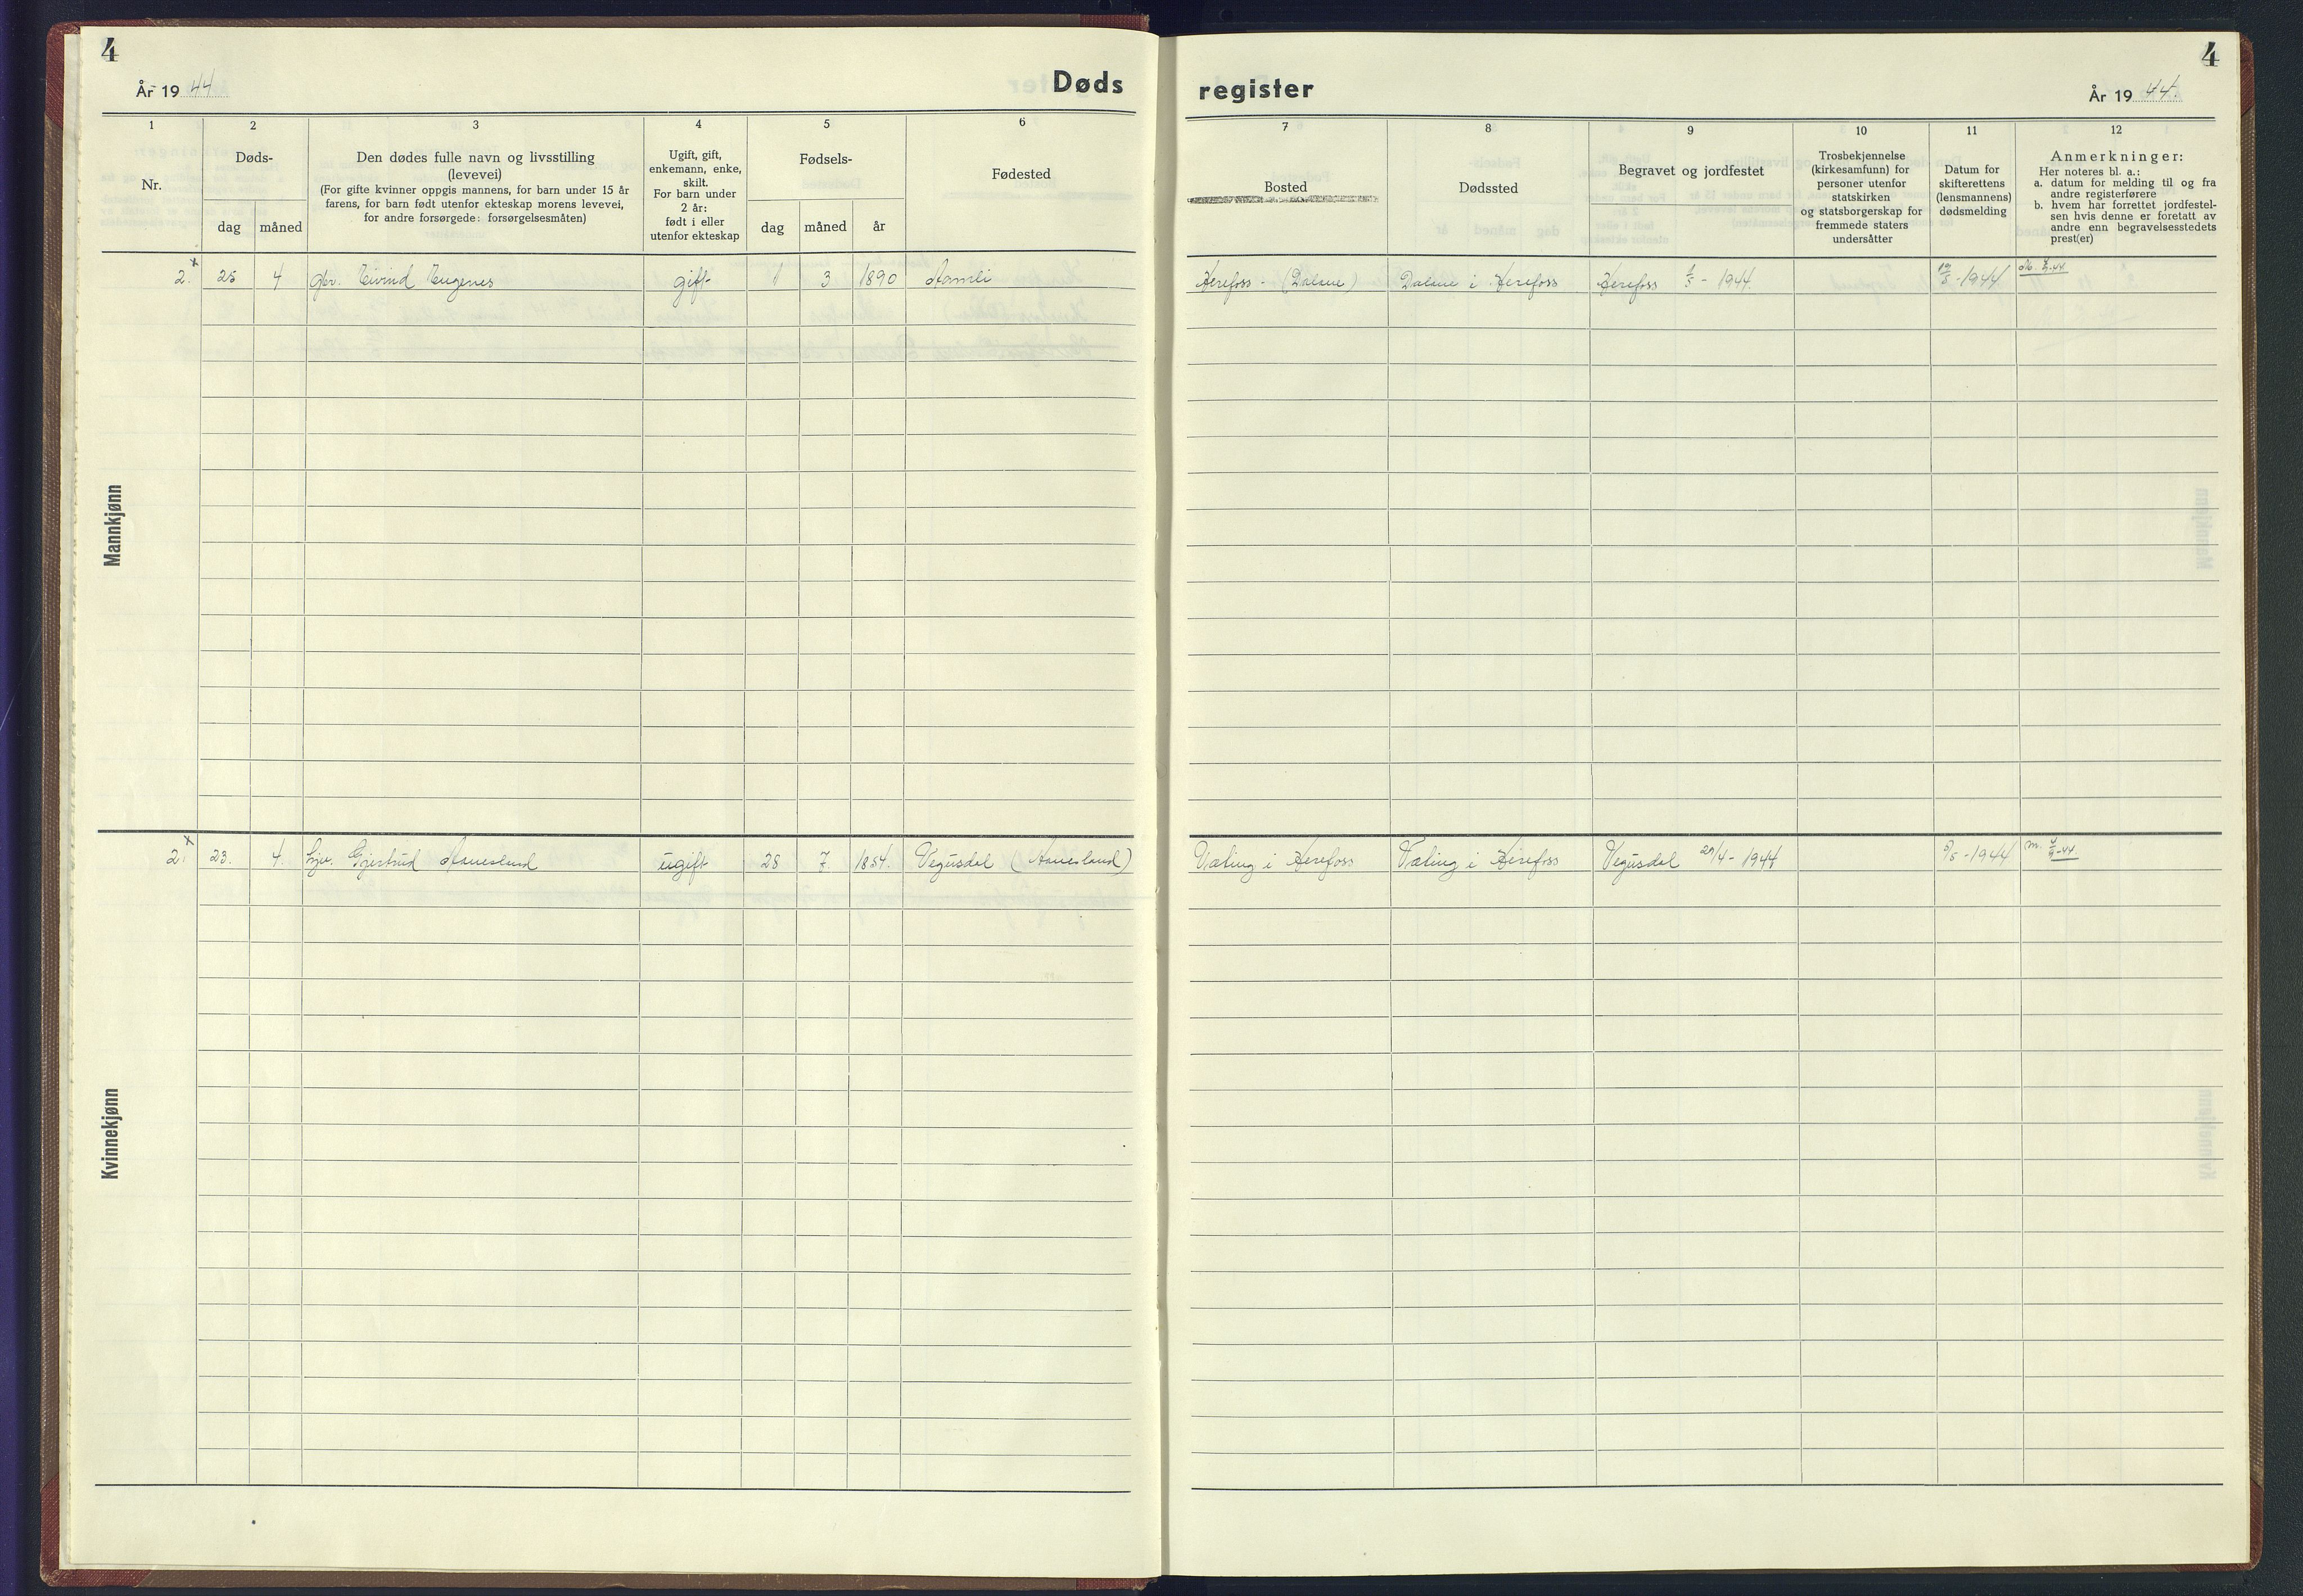 4
År 1944
Døds
register
År 1944.
4
1
2
3
4
5
6
7
8
9
10
11
12
Nr.
Døds-
dag
måned
Den dødes fulle navn og livsstilling
(levevei)
(For gifte kvinner oppgis mannens, for barn under 15 år
farens, for barn født utenfor ekteskap morens levevei,
for andre forsørgede: forsørgelsesmåten)
Ugift, gift,
enkemann, enke,
skilt.
For barn under
2 år:
født i eller
utenfor ekteskap
Fødsels-
dag
måned
år
Fødested
Bosted
Dødssted
Begravet og jordfestet
Trosbekjennelse
(kirkesamfunn) for
personer utenfor
statskirken
og statsborgerskap for
fremmede staters
undersåtter
Datum for
skifterettens
(lensmannens)
dødsmelding
Anmerkninger:
Her noteres bl. a.:
a. datum for melding til og fra
andre registerførere
b. hvem har forrettet jordfestel-
sen hvis denne er foretatt av
andre enn begravelsesstedets
prest(er)
Mannkjønn
2. x 25 4 Gbr. Eivind Eugenes gift 1 3 1890 Aamli Herefoss - (Dalane) Dalane i Herefoss Herefoss 1/5 - 1944. 12/5 - 1944
Kvinnekjønn
2. x 23. 4. Gjertrud Aanesland ugift 28 7. 1854. Vegusdal (Aanesland) Væting i Herefoss Væting i Herefoss Vegusdal 29/4 - 1944 5/5 - 1944 m.